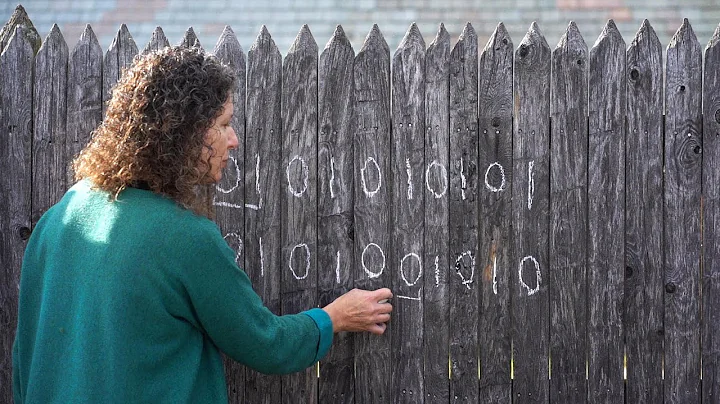 0 1 0 1 0 1 0 1 0 1
0 1 0 1 0 0 1 0 1 0